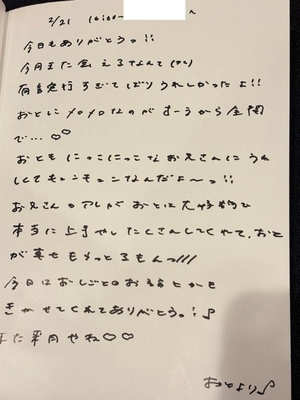 2/21 16:00~
今日もありがとうっ!!
今月また会えるなんて
有言実行すぎてばりうれしかったよ!!
おとにメロメロなのがすーっから全開
で…♡♡
おともにっこにっこなお兄さんにうれ
しくてもーニもーニなんだよ〜っ!!
お兄さんのアレがおとは大好物
本当に上手やしたくさんしてくれて、おと
が幸せももっともん///
今日はおしごとのお話とかも
きかせてくれてありがとう。!♪
また来月やね♡♡
おとより♪